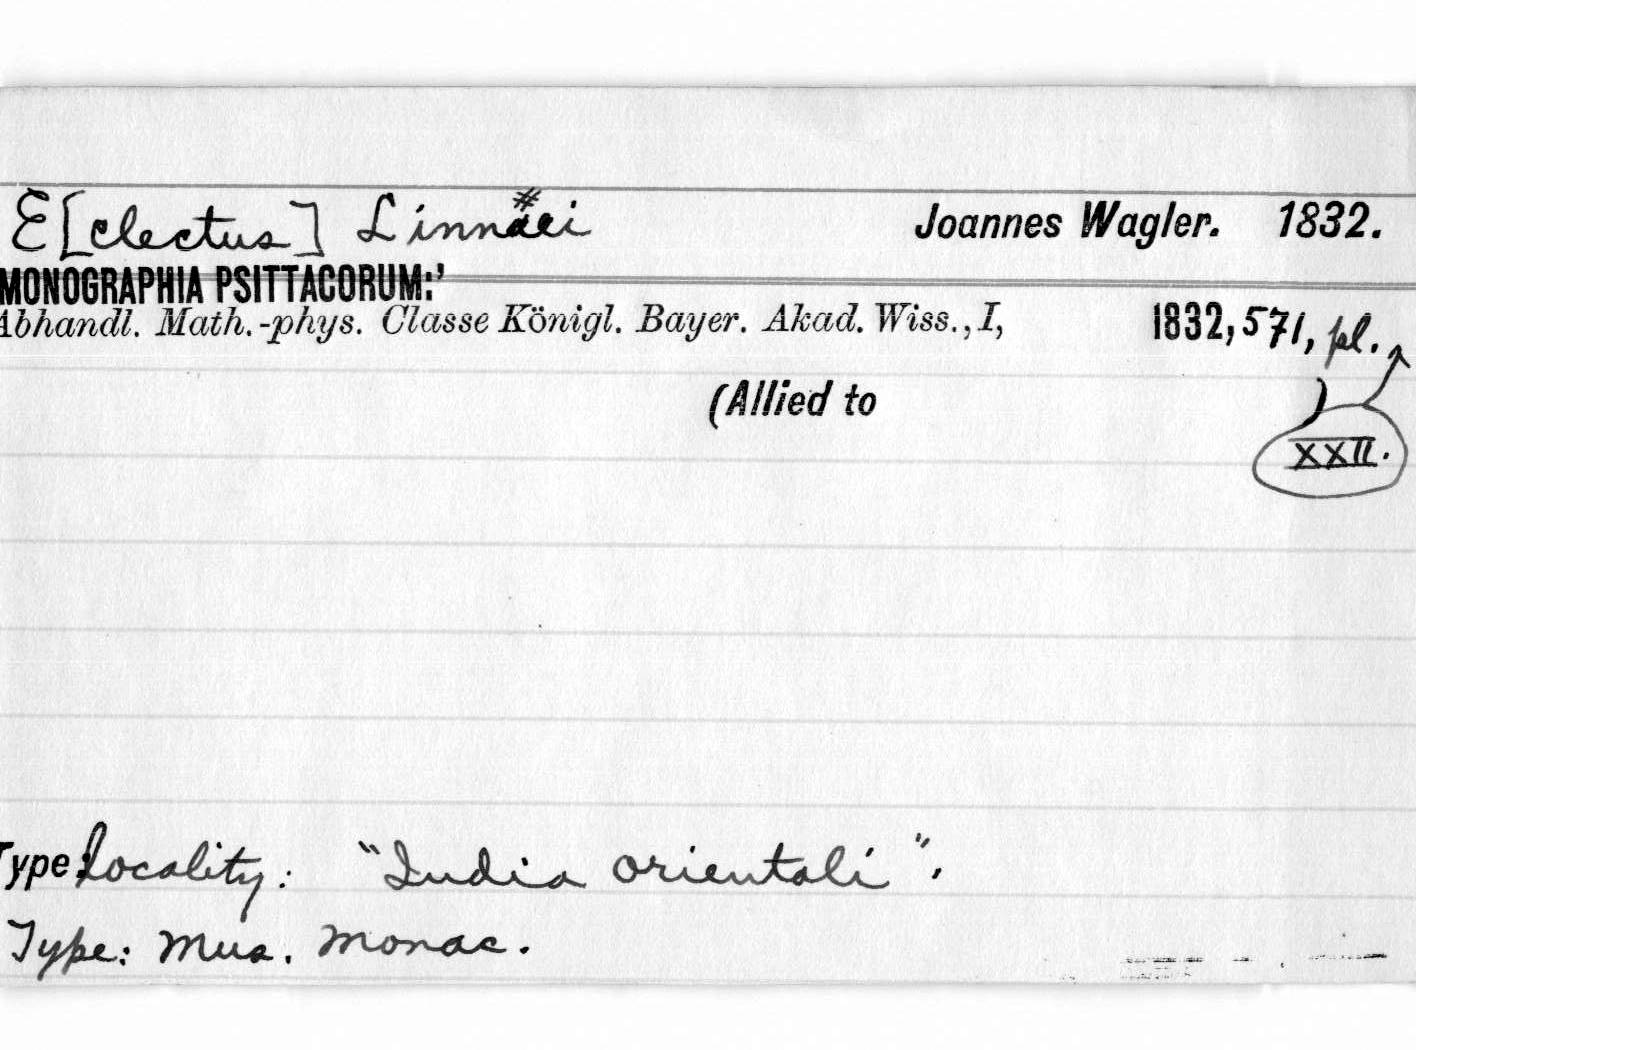 E[clectus] Linnaei # Joannes Wagler. 1832.
MONOGRAPHIA PSITTACORUM:'
Abhandl. Math.-phys. Classe Königl. Bayer. Akad. Wiss., I, 1832, 571, pl.
(Allied to )
XXII.
Type locality: "India orientali".
Type: Mus. Monac.